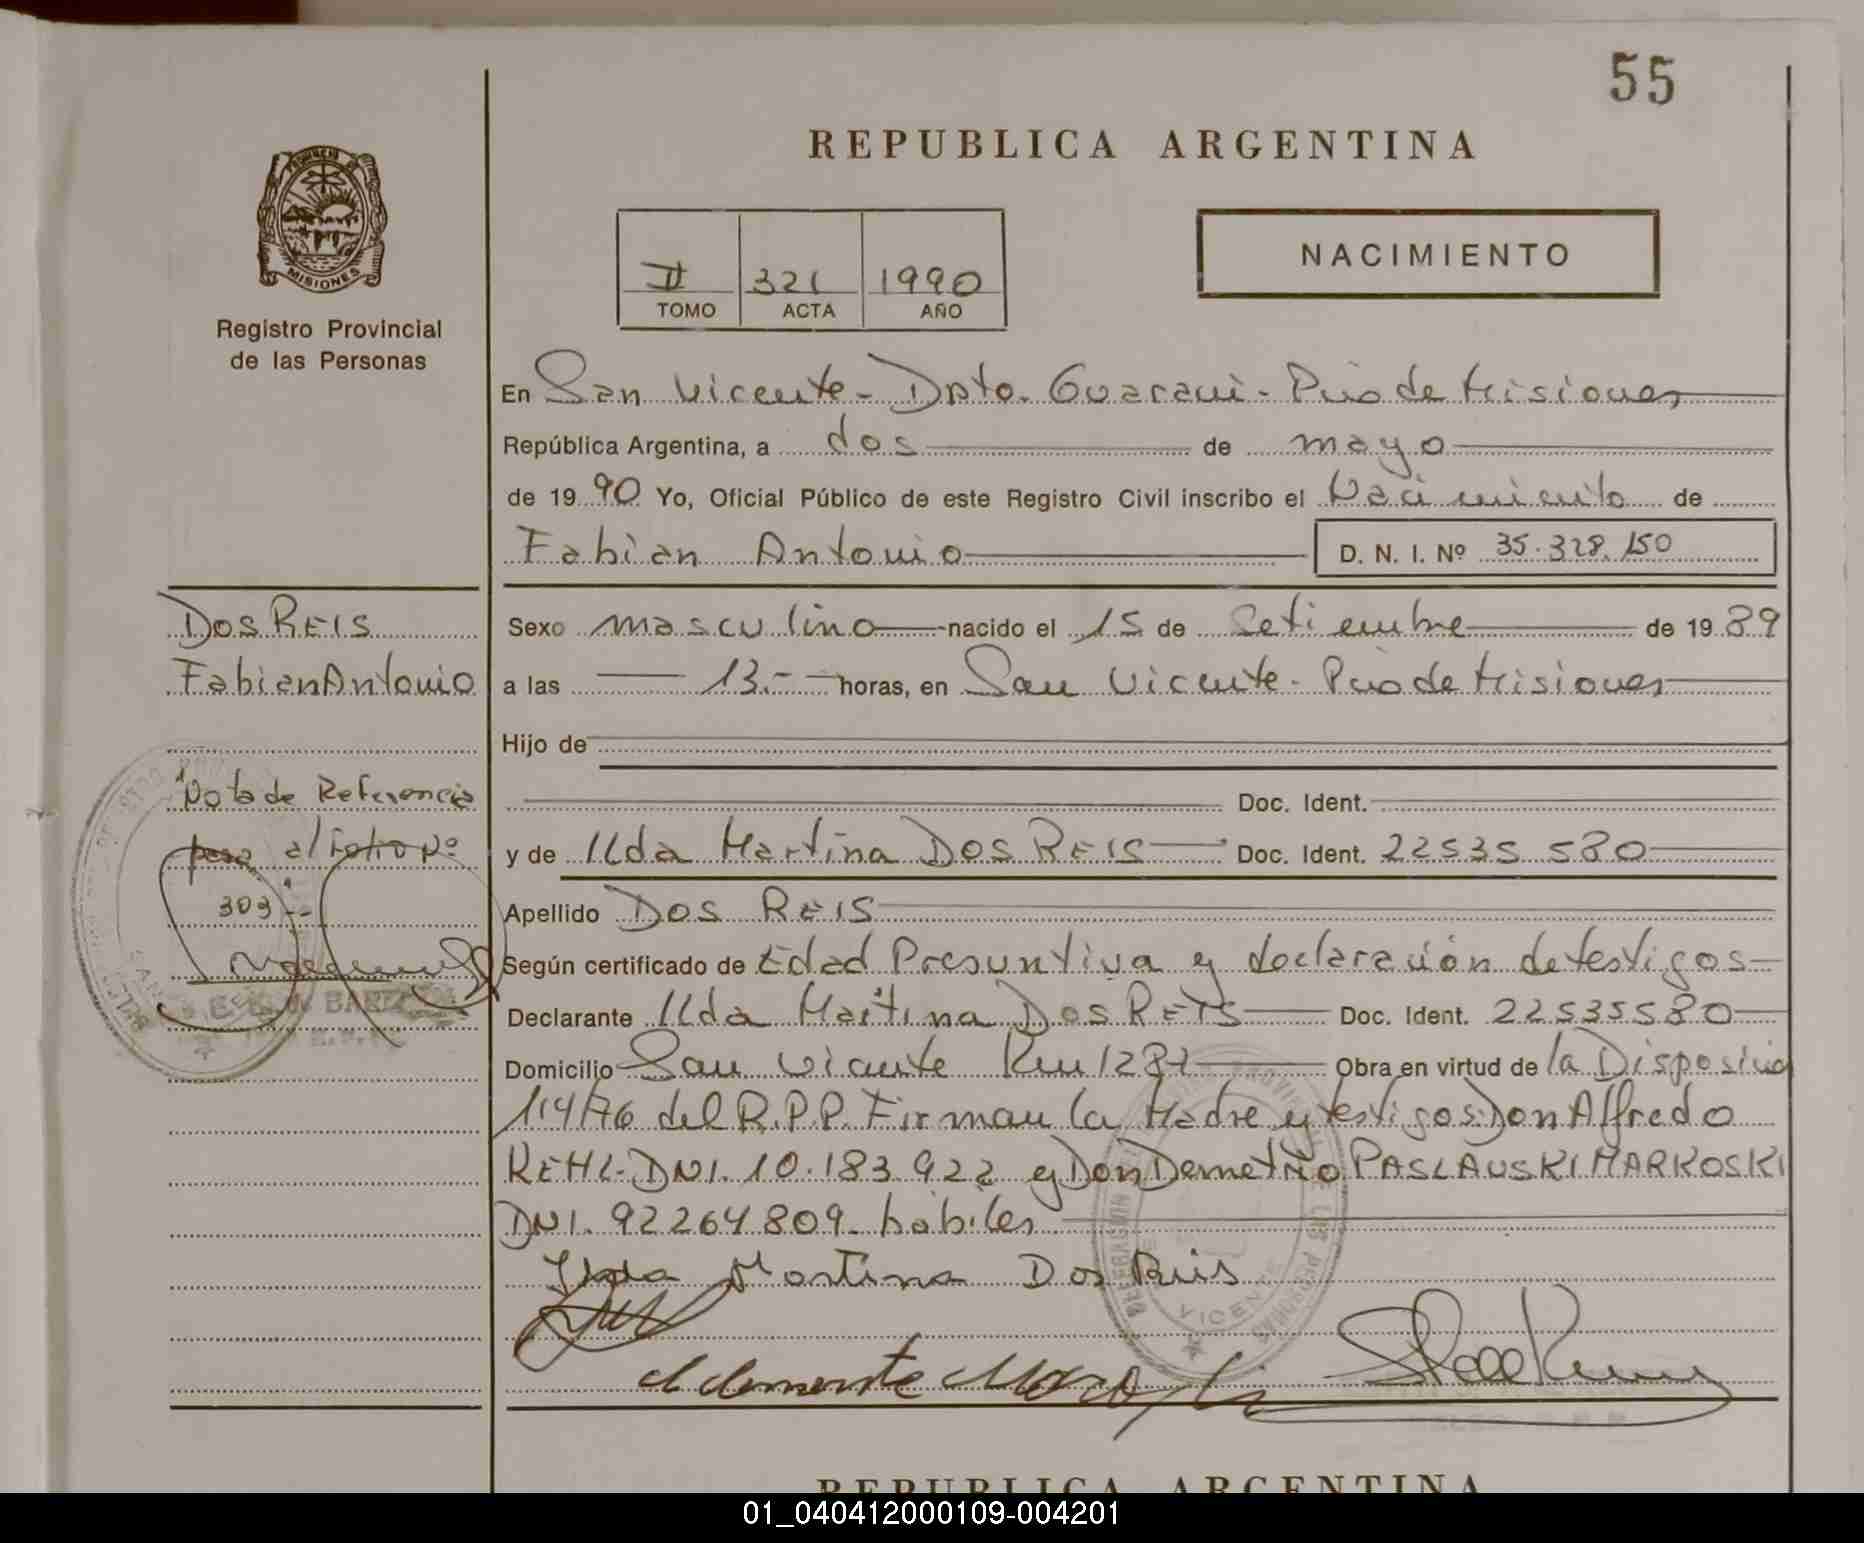 55
REPUBLICA ARGENTINA
PROVINCIA DE
MISIONES
Registro Provincial
de las Personas
II 321 1990
TOMO ACTA AÑO
NACIMIENTO
En San Vicente - Dpto. Guarani - Pcio de Misiones
República Argentina, a dos de mayo
de 19 90 Yo, Oficial Público de este Registro Civil inscribo el Nacimiento de
Fabian Antonio D. N. I. Nº 35.328.150
DOS REIS
Fabian Antonio
Sexo masculino nacido el 15 de Setiembre de 19 89
a las 13.- horas, en San Vicente - Pcio de Misiones
Hijo de
Doc. Ident.
Nota de Referencia
pasa al Folio Nº
303
y de Ilda Martina DOS REIS Doc. Ident. 22535580
Apellido DOS REIS
Según certificado de Edad Presuntiva y declaración de testigos
Declarante Ilda Martina Dos REIS Doc. Ident. 22535580
Domicilio San Vicente Km 1281 Obra en virtud de la Disposicio
114/76 del R.P.P. Firman la Madre y testigos: Don Alfredo
KEHL - DNI. 10.183.922 y Don Demetrio PASLAUSKI MARKOSKI
DNI. 92264809. habiles
Ilda Martina Dos Reis
VICENTE
REPUBLICA ARGENTINA
01_040412000109-004201